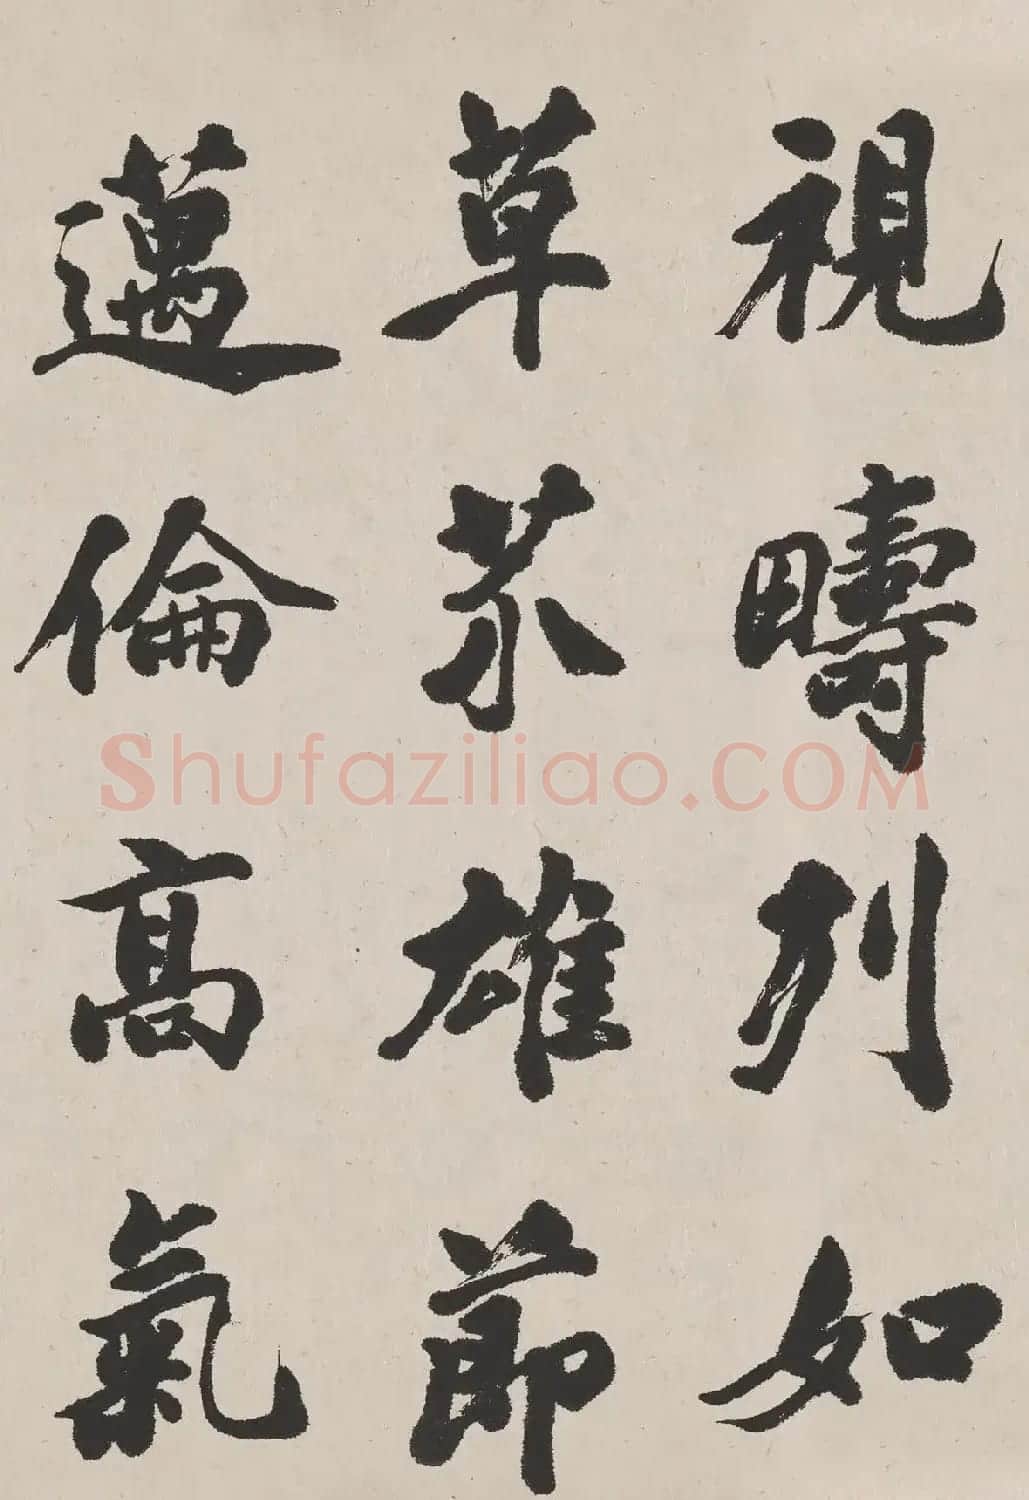 視疇列如
草芥雄節
邁倫高氣
Shufaziliao.COM